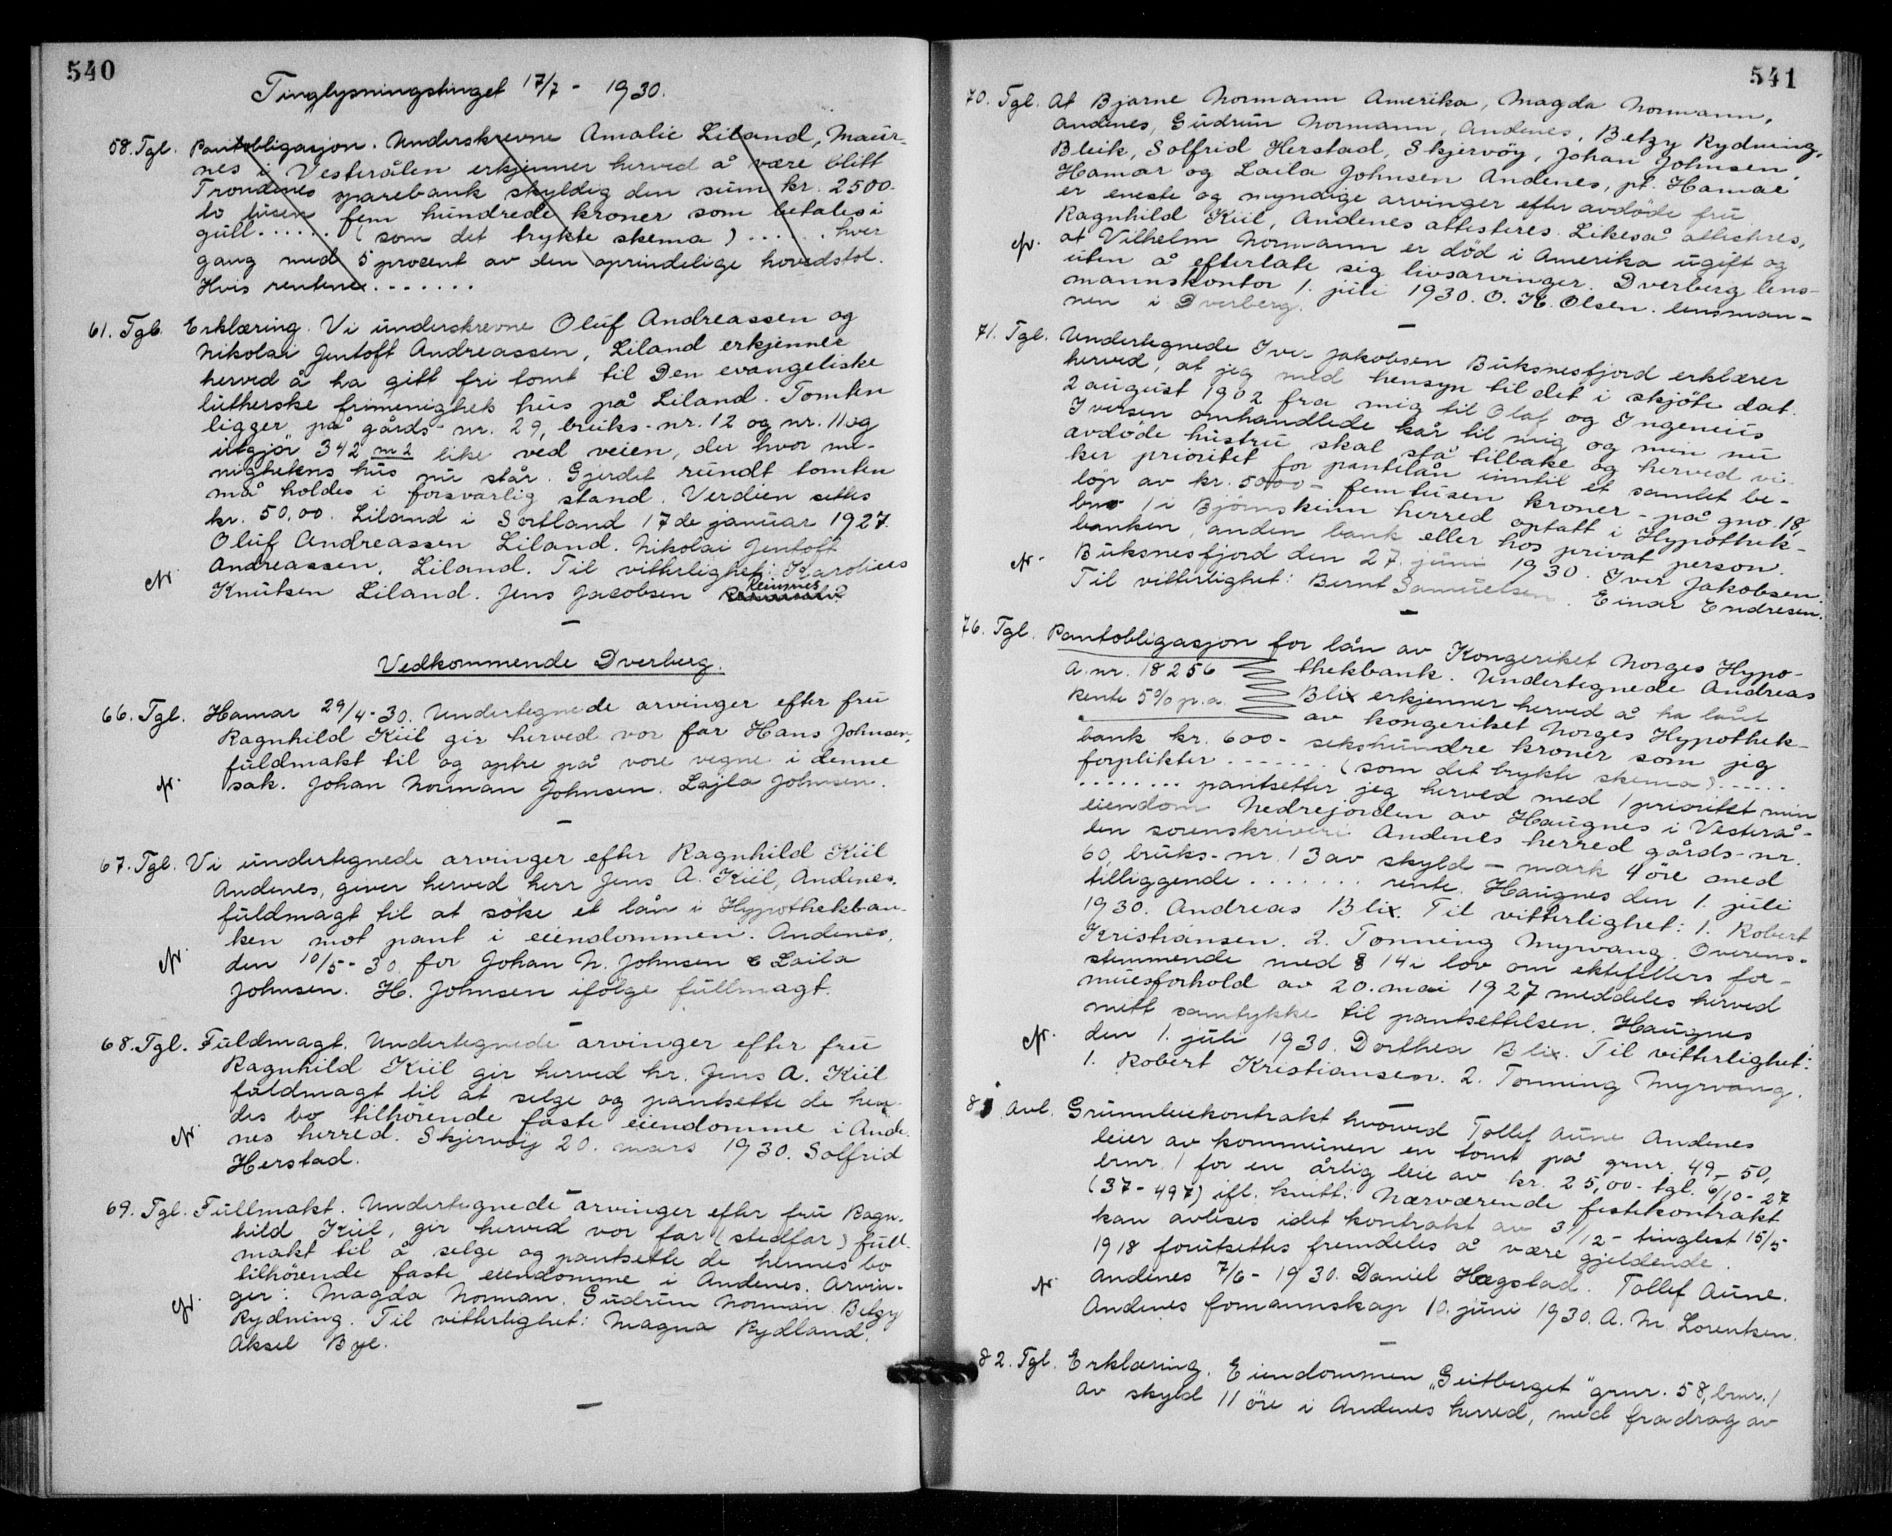 540
Tinglysningstinget 17/7 - 1930.
58. Tgl. Pantobligasjon. Underskrevne Amalie Liland, Maur-
nes i Vesterålen erkjenner herved å være blitt
Trondenes sparebank skyldig den sum kr. 2500-
to tusen fem hundrede kroner som betales i
gull...... (som det trykte skema) ...... hver
gang med 5 prosent av den oprindelige hovedstol.
Hvis rentene.......
61. Tgl. Erklæring. Vi underskrevne Oluf Andreassen og
Nikolai Jentoft Andreassen, Liland erkjenner
herved å ha gitt fri tomt til Den evangeliske
lutherske frimenighets hus på Liland. Tomten
ligger på gårds-nr. 29, bruks-nr. 12 og nr. 11 og
utgjör 342 m2 like ved veien, der hvor me-
nighetens hus nu står. Gjerdet rundt tomten
må holdes i forsvarlig stand. Verdien settes
kr. 50,00. Liland i Sortland 17de januar 1927.
Oluf Andreassen Liland. Nikolai Jentoft
Andreassen, Liland. Til vitterlighet: Karolius
Knutsen Liland. Jens Jacobsen Reinnes
Vedkommende Dverberg.
66. Tgl. Hamar 29/4-30. Undertegnede arvinger efter fru
Ragnhild Kiil gir herved vor far Hans Johnsen,
fuldmakt til og optre på vore vegne i denne
sak. Johan Norman Johnsen. Lajla Johnsen.
67. Tgl. Vi undertegnede arvinger efter Ragnhild Kiil
Andenes, giver herved herr Jens A. Kiil, Andenes,
fuldmagt til at söke et lån i Hypothekban-
ken mot pant i eiendommen. Andenes,
den 10/5-30. for Johan N. Johnsen & Laila
Johnsen. H. Johnsen ifölge fullmagt.
68. Tgl. Fuldmagt. Undertegnede arvinger efter frue
Ragnhild Kiil gir herved hr. Jens A. Kiil
fuldmagt til at selge og pantsette de hen-
des bo tilhörende faste eiendomme i Ande-
nes herred. Skjervöy 20. mars 1930. Solfrid
Herstad.
69. Tgl. Fullmakt. Undertegnede arvinger efter fru Ragn-
hild Kiil, gir herved vor far (stedfar) full-
makt til å selge og pantsette de hennes bo
tilhörende faste eiendomme i Andenes. Arvin-
ger: Magda Norman. Gudrun Norman. Betzy
Rydning. Til vitterlighet: Magna Rydland.
Aksel Bye.
541
70. Tgl. At Bjarne Normann Amerika, Magda Normann,
Andenes, Gudrun Normann, Andenes, Betzy Rydning,
Bleik, Solfrid Herstad, Skjervöy, Johan Johnsen,
Hamar og Laila Johnsen Andenes, pt. Hamar
er eneste og myndige arvinger efter avdöde fru
Ragnhild Kiil, Andenes attesteres. Likeså attesteres,
at Vilhelm Normann er död i Amerika ugift og
uten å efterlate sig livsarvinger. Dverberg lens-
mannskontor 1. juli 1930. O. K. Olsen. lensman-
nen i Dverberg.
71. Tgl. Undertegnede Iver Jakobsen Buksnesfjord erklærer
herved, at jeg med hensyn til det i skjöte dat.
2 august 1902 fra mig til Olaf og Ingenius
Iversen omhandlede kår til mig og min nu
avdöde hustru skal stå tilbake og herved vi-
ker prioritet for pantelån inntil et samlet be-
löp av kr. 5000- femtusen kroner - på gno. 18,
bno 1 i Bjørnskinn herred optatt i Hypothek-
banken, anden bank eller hos privat person.
Buksnesfjord den 27. juni 1930. Iver Jakobsen.
Til vitterlighet: Bernt Samuelsen. Einar Endresen.
76. Tgl. Pantobligasjon for lån av Kongeriket Norges Hypo-
A. nr. 18256 thekbank. Undertegnede Andreas
Rente 5% p.a. Blix erkjenner herved å ha lånt
av kongeriket Norges Hypothek-
bank kr. 600- sekshundre kroner som jeg
forplikter ....... (som det trykte skema) ......
........ pantsetter jeg herved med 1 prioritet min
eiendom Nedrejorden av Haugnes i Vesterå-
len sorenskriveri Andenes herred gårds-nr.
60, bruks-nr. 13 av skyld - mark 4 öre med
tilliggende ....... rente. Haugnes den 1. juli
1930. Andreas Blix. Til vitterlighet: 1. Robert
Kristiansen. 2. Tonning Myrvang. Overens-
stemmende med § 14 i lov om ektefellers for-
muesforhold av 20. mai 1927 meddeles herved
mitt samtykke til pantsettelsen. Haugnes
den 1. juli 1930. Dorthea Blix. Til vitterlighet:
1. Robert Kristiansen. 2. Tonning Myrvang.
Avl. Grunnleiekontrakt hvorved Tollef Aune Andenes
leier av kommunen en tomt på grnr. 49-50,
brnr. 1 for en årlig leie av kr. 25,00- tgl. 6/10-27
(37-497) ifl. kvitt: Nærværende festekontrakt
kan avlises idet kontrakt av 31/12- tinglest 15/5
1918 forutsettes fremdeles å være gjeldende.
Andenes 7/6-1930. Daniel Hægstad. Tollef Aune.
Andenes fomannskap 10. juni 1930. A. M. Lorentsen.
82. Tgl. Erklæring. Eiendommen „Geitberget" grnr. 58, brnr. 1
av skyld 11 öre i Andenes herred, med fradrag av